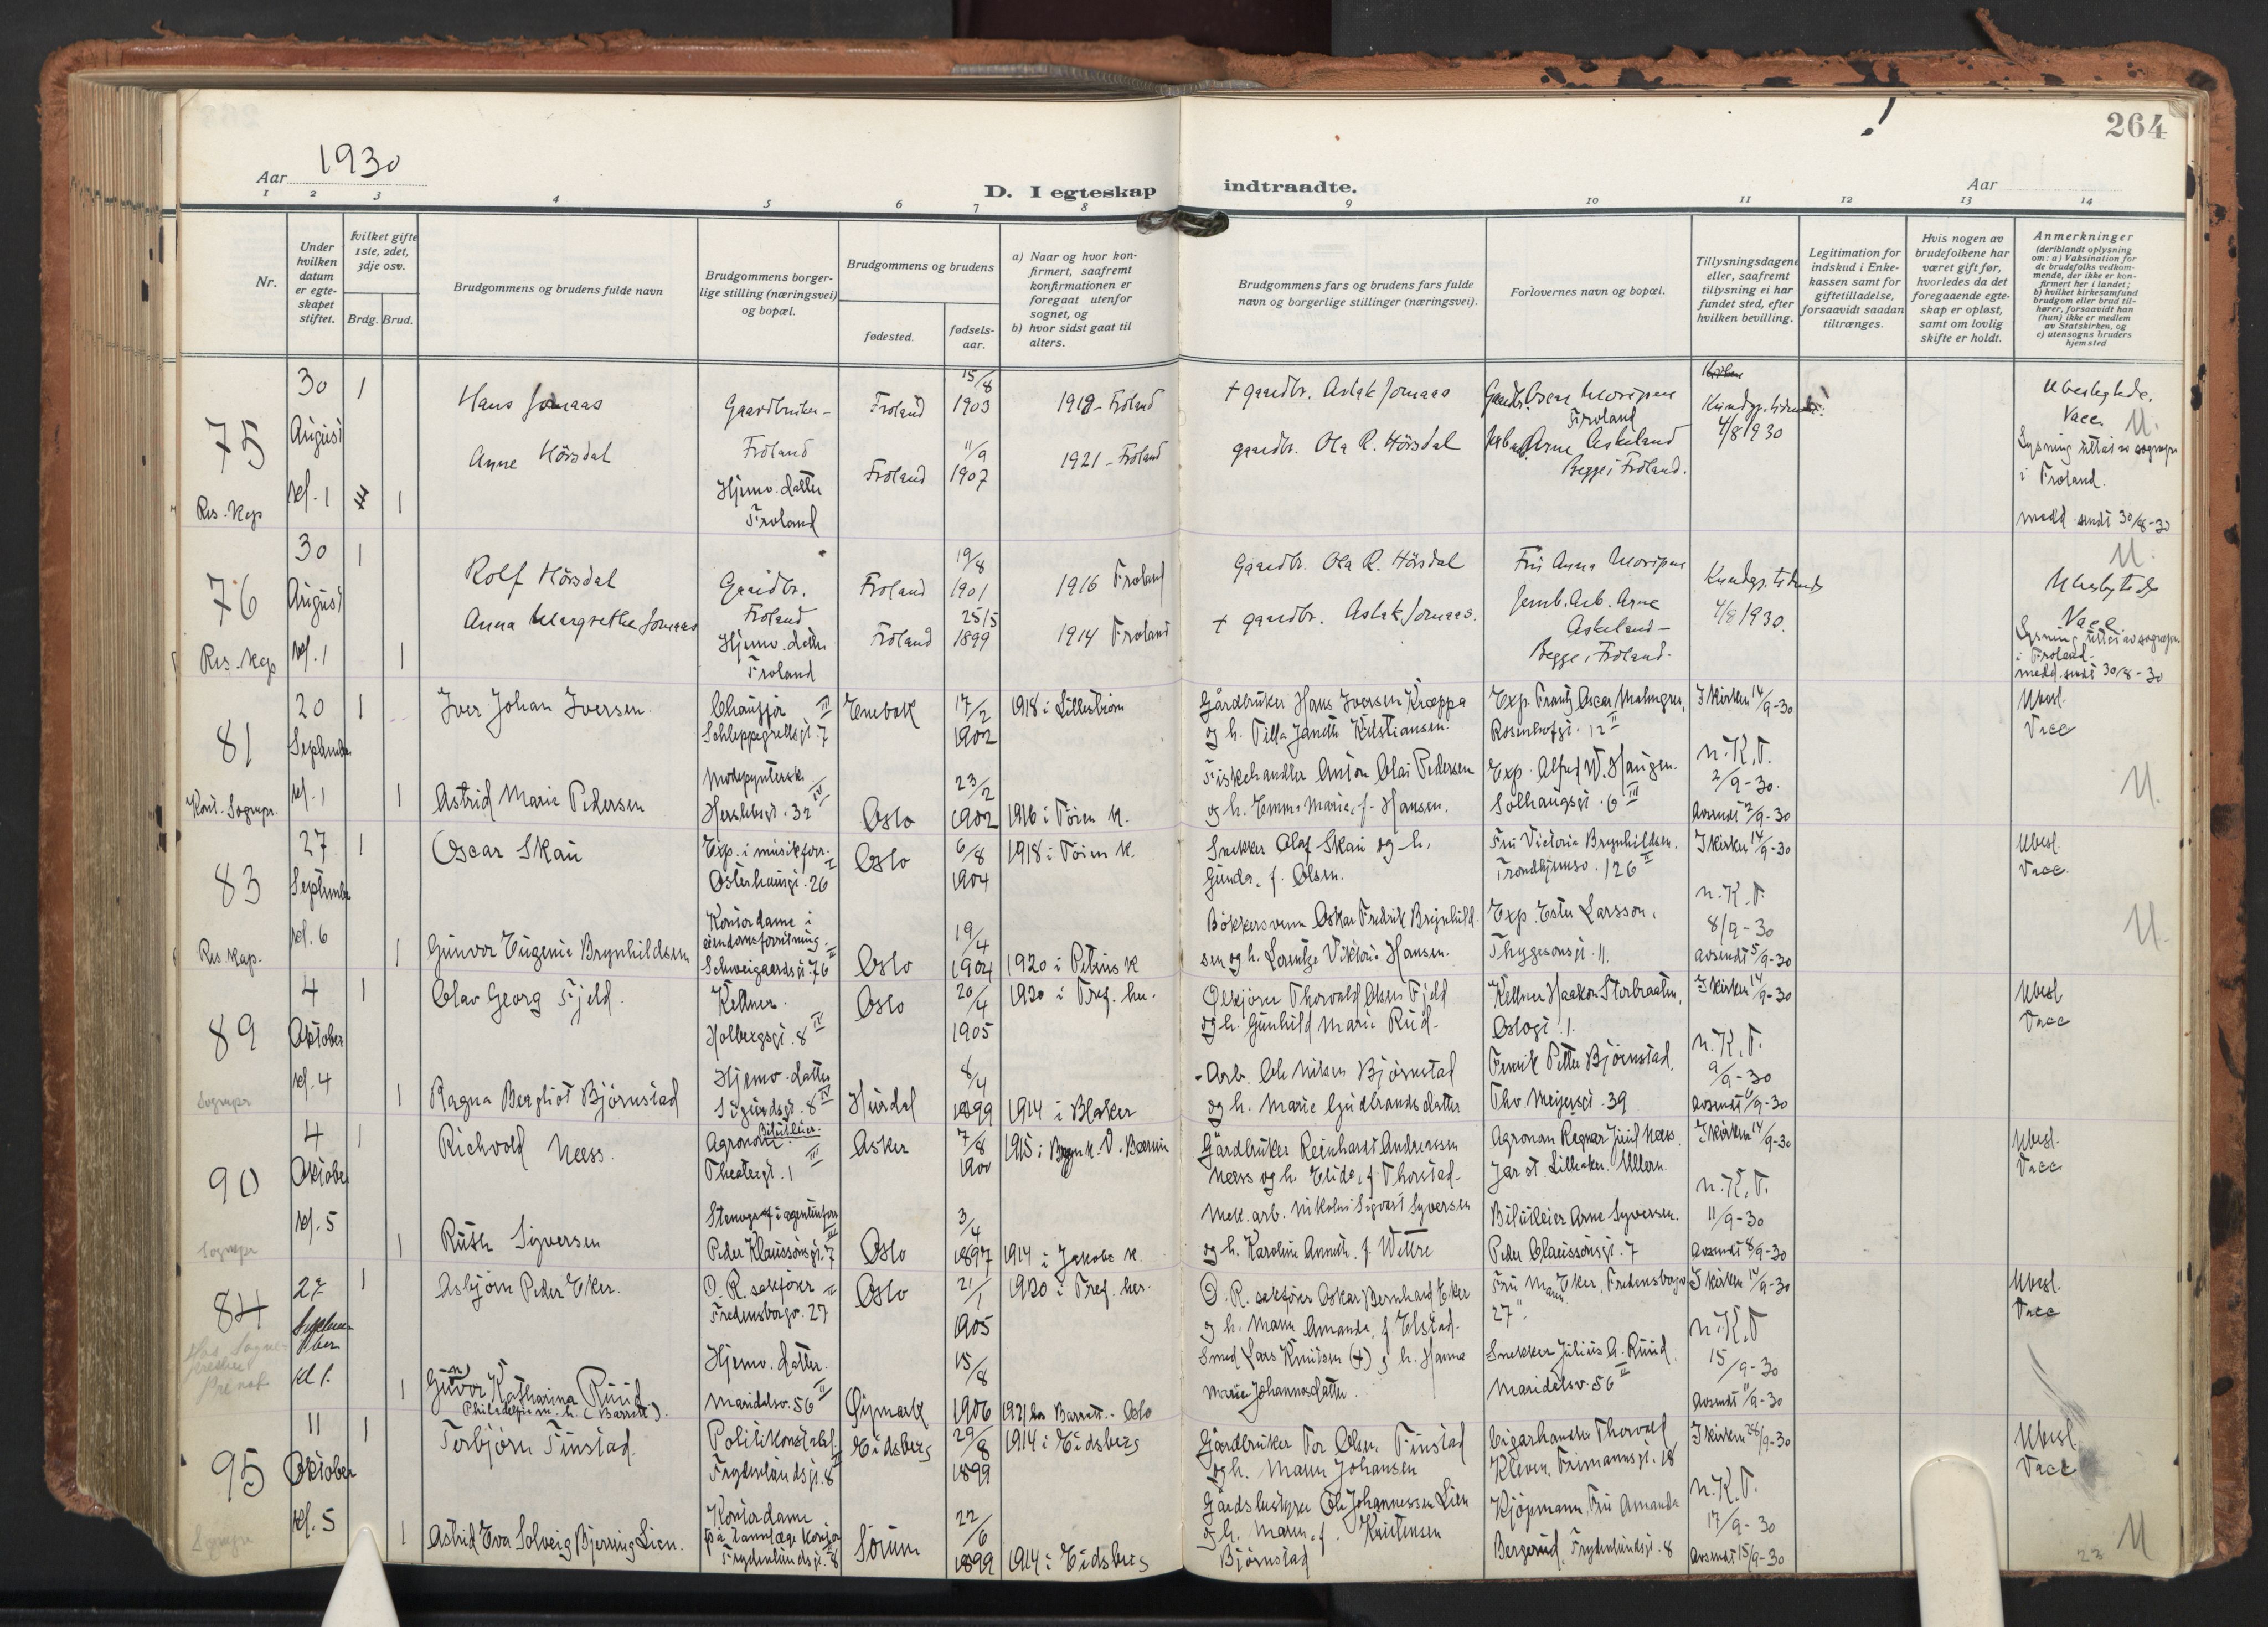 264
Aar 1930
D. I egteskap indtraadte.
Aar
1 2 3 4 5 6 7 8 9 10 11 12 13 14
Nr.
Under hvilken datum er egte-skapet stiftet.
Hvilket gifte 1ste, 2det, 3dje osv.
Brdg. Brud.
Brudgommens og brudens fulde navn
Brudgommens borger-lige stilling (næringsvei) og bopæl.
Brudgommens og brudens
fødested.
fødsels-aar.
a) Naar og hvor kon-firmert, saafremt konfirmationen er foregaat utenfor sognet, og
b) hvor sidst gaat til alters.
Brudgommens fars og brudens fars fulde navn og borgerlige stillinger (næringsvei).
Forlovernes navn og bopæl.
Tillysningsdagene eller, saafremt tillysning ei har fundet sted, efter hvilken bevilling.
Legitimation for indskud i Enke-kassen samt for giftetilladelse, forsaavidt saadan tiltrænges.
Hvis nogen av brudefolkene har været gift før, hvorledes da det foregaaende egte-skap er opløst, samt om lovlig skifte er holdt.
Anmerkninger
(deriblandt oplysning om: a) Vaksination for de brudefolks vedkom-mende, der ikke er kon-firmert her i landet; b) hvilket kirkesamfund brudgom eller brud til-hører, forsaavidt han (hun) ikke er medlem av Statskirken, og c) utensogns bruders hjemsted
75
30 August kl. 1
Res. kap
1
1
Hans Jomaas
Gaardbruker - Froland
Froland
15/8 1903
1918 - Froland
+ gaardbr. Aslak Jomaas
Froland
Kundgj. tidende
4/8 1930
Ubeslegtede.
Vacc. U.
Lysning uttat av sognepr. i Froland.
medd. sendt 30/8-30
Anne Hörsdal
Hjemv. datter
Froland
Froland
11/9 1907
1921 - Froland
gaardbr. Ola R. Hörsdal
Arne Askeland
Begge i Froland.
76
30 August kl. 1
Res. kap
1
1
Rolf Hörsdal
Gaardbr.
Froland
Froland
19/8 1901
1916 Froland
Gaardbr. Ola R. Hörsdal
Kundgj. tidende
4/8 1930.
U.
Ubeslegtede
Vacc.
Lysning uttat av sognepr. i Froland.
medd. sendt 30/8-30
Anna Margrethe Jomaas
Hjemv. datter
Froland
Froland
25/5 1899
1914 Froland
+ gaardbr. Aslak Jomaas.
Jernb. Arb. Arne Askeland -
Begge i Froland.
81
20 September kl. 1
Konst. Sognepr.
1
1
Iver Johan Iversen.
Chauffør
Schleppegrellsgt. 7 II
Enebak
17/2 1902
1918 i Lilleström
Gårdbruker Hans Iversen Kroppa
og h. Tilla Janette Kristiansen.
Exp. Frantz Oscar Malmgren,
Rosenhofgt. 12 II
I kirken 14/9-30
Ubesl.
Vacc
Astrid Marie Pedersen
Modepynterske.
Herslebsgt. 32 IV
Oslo
23/2 1902
1916 i Töien K.
Fiskehandler Anton Olai Pedersen
og h. Emma Marie, f. Hansen.
Exp. Alfred W. Haugen.
Solhaugsgt. 6 III
N.K.T.
2/9-30.
Avsendt 2/9-30
U.
83
27 September kl. 6
Res. kap.
1
1
Oscar Skau
Exp. i musikforr.
Osterhausgt. 26
Oslo
6/8 1904
1918 i Töien K.
Snekker Olaf Skau og h.
Gunda, f. Olsen.
Fru Victoria Brynhildsen.
Trondhjemsv. 126 II
I kirken 14/9-30
Ubesl.
Vacc.
Gunvor Eugenie Brynhildsen
Kontordame i eiendomsforretning.
Schweigaardsgt. 76 II
Oslo
19/4 1904
1920 i Petrus K
Bökkersvenn Oskar Fredrik Brynhild-
sen og h. Lorentze Viktoria Hansen.
Exp. Ester Larsson.
Thygesonsgt. 11.
N.K.T.
8/9-30
Avsendt 5/9-30
U.
89
4 Oktober kl. 4
Sognepr
1
1
Olav Georg Fjeld.
Kellner.
Holbergsgt. 8 IV
Oslo
20/4 1905
1920 i Tref. her.
Ölkjörer Thorvald Olsen Fjeld
og h. Gunhild Marie Rud.
Kellner Haakon Storbraaten,
Oslogt. 1.
I kirken 14/9-30
Ubesl
Vacc
Ragna Bergliot Björnstad
Hjemv. datter
Sigurdsgt. 8 IV
Hurdal
8/4 1899
1914 i Blaker
Arb. Ole Nilsen Björnstad
og h. Marie Gudbrandsdatter
Petter Björnstad.
Thv. Meyersgt. 39
N.K.T.
9/9-30
Avsendt 6/9-30
90
4 Oktober kl. 5
Sognepr
1
1
Richvold Næss.
Agronom. Bilutleier.
Theatergt. 1 III
Asker
7/8 1900
1915 i Bryn k. V. Bærum
Gårdbruker Reinhardt Andreassen
Næss og h. Elida, f. Thorstad.
Agronom Ragnar Juul Næss.
Jar st. Lilleaker. Ullern.
I kirken 14/9-30
Ubesl.
Vacc
Ruth Syversen
Stenograf i agenturforr.
Peder Klaussönsgt. 7 III
Oslo
3/4 1897
1914 i Jakobs K.
Mek. arb. Nikolai Sigvart Syversen
og h. Karoline Annette, f. Wettre
Bilutleier Arne Syversen.
Peder Claussönsgt. 7
N.K.T.
11/9-30
Avsendt 8/9-30
84
27 September kl 1.
1
1
Asbjörn Peder Eker.
O.R. sakförer
Fredensborgv. 27 II
Oslo
21/1 1905
1920 i Tref. her.
O.R. sakförer Oskar Bernhard Eker
og h. Marn Amanda, f. Elstad.
Fru Marn Eker, Fredensborgv
27 II
I kirken 14/9-30
Ubesl.
Vacc
Gunvor Katharina Ruud
(Barratt).
Hjemv. datter.
Maridalsv. 56 II
Öymark
15/8 1906
1921 hos Barratt. - Oslo
Smed Lars Knutsen (+) og h. Hanna
Marie Johannesdatter.
Snekker Julius A. Ruud.
Maridalsv. 56 II
N.K.T
15/9-30
Avsendt 11/9-30
95
11 Oktober kl. 5
1
1
Torbjörn Finstad.
Politikonstabel.
Frydenlundsgt. 8
Eidsberg
29/8 1899
1914 i Eidsberg
Gårdbruker Tor Olsen Finstad
og h. Maren Johansen
Cigarhandler Thorvald
Kleven, Frimannsgt. 18
I kirken 28/9-30
Ubesl.
Vacc
Astrid Eva Solveig Bjerring Lien.
Kontordame
på tannlæge kontor
Frydenlundsgt. 8
Sörum
22/6 1899
1914 i Eidsberg
Gårdsbestyrer Ole Johannessen Lien
og h. Maren, f. Kristensen
Björnstad
Kjöpmann, Fru Amanda
Bergerud, Frydenlundsgt. 8
N.K.T.
17/9-30
Avsendt 15/9-30
U
23